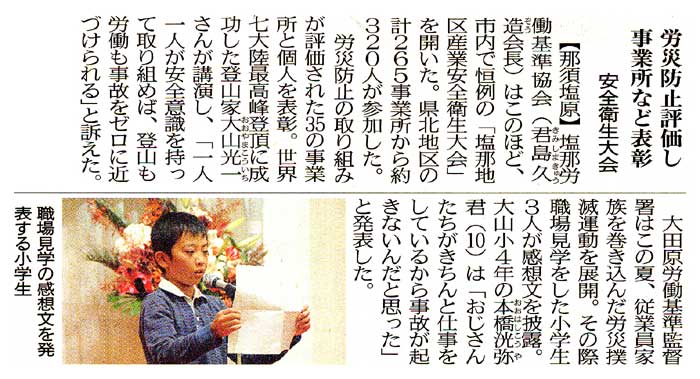 労災防止評価し
事業所など表彰
安全衛生大会
【那須塩原】塩那労
働基準協会（君島久
造会長）はこのほど、
市内で恒例の「塩那地
区産業安全衛生大会」
を開いた。県北地区の
計265事業所から約
320人が参加した。
労災防止の取り組み
が評価された35の事業
所と個人を表彰。世界
七大陸最高峰登頂に成
功した登山家大山光一
さんが講演し、「一人
一人が安全意識を持っ
て取り組めば、登山も
労働も事故をゼロに近
づけられる」と訴えた。
大田原労働基準監督
署はこの夏、従業員家
族を巻き込んだ労災撲
滅運動を展開。その際
職場見学をした小学生
3人が感想文を披露。
大山小4年の本橋洸弥
君（10）は「おじさん
たちがきちんと仕事を
しているから事故が起
きないんだと思った」
と発表した。
職場見学の感想文を発
表する小学生